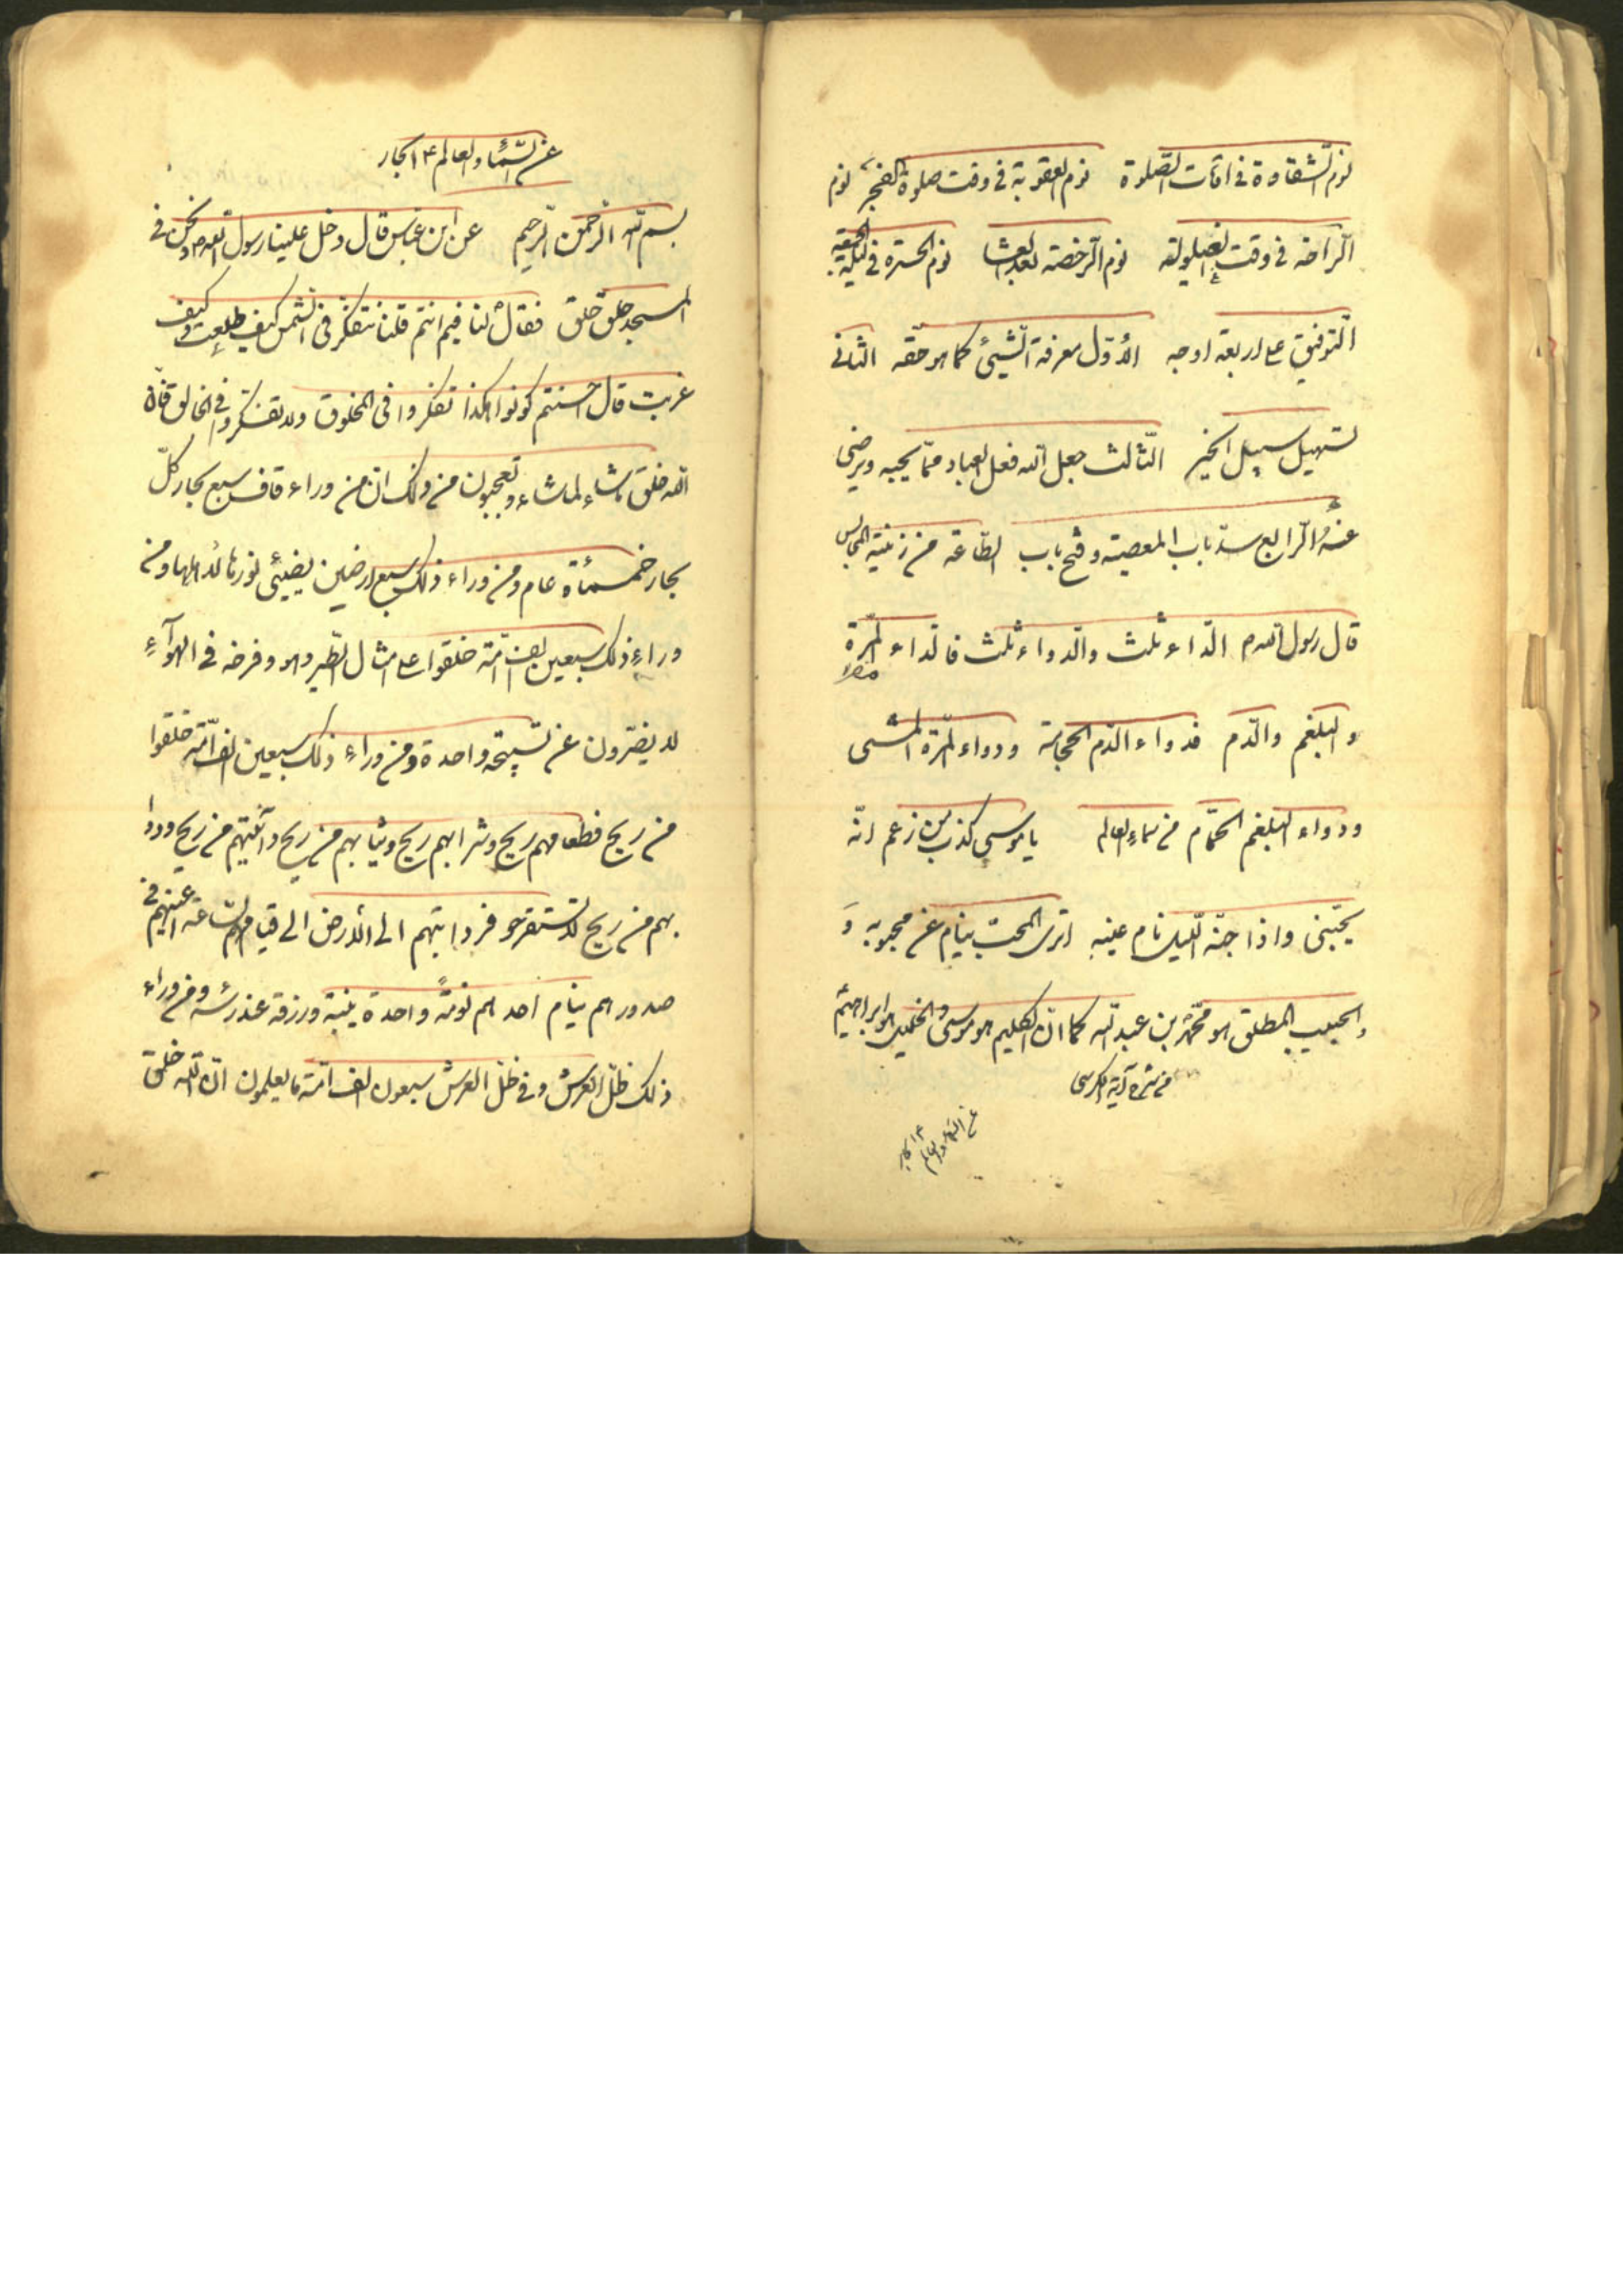 نوم الشقاوة فی اوقات الصّلوة نوم العقوبة فی وقت صلوة الفجر نوم
الرّاحة فی وقت القیلولة نوم الرّخصة بعد العشا نوم الحسرة فی لیلة الجمعة
التّوفیق علی اربعة اوجه الأوّل معرفة الشّیئ کما هو حقّه الثانی
تسهیل سبیل الخیر الثّالث جعل الله فعل العباد ممّا یحبه و یرضی
عنه الرّابع سدّ باب المعصیة و فتح باب الطّاعة من زینة المجالس
قال رسول الله ص الدّاء ثلث والدّواء ثلث فالدّاء المرّة
والبلغم والدّم فدواء الدّم الحجامة ودواء المرّة المشی
ودواء البلغم الحمّام من سماء العالم یا موسی کذب من زعم انّه
یحبّنی واذا جنّه اللّیل نام عینه اتری المحبّ ینام عن محبوبه وَ
الحبیب المطلق هو محمّد بن عبد الله کما انّ الکلیم هو موسی والخلیل هو ابراهیم
من شرح آیة الکرسی
عن السّماء والعالم ۱۴ بحار
عن السّماء والعالم ۱۴ بحار
بسم الله الرّحمن الرّحیم عن ابن عبّاس قال دخل علینا رسول الله ص و نحن فی
المسجد حلق حلق فقال لنا فیم انتم قلنا نتفکّر فی الشّمس کیف طلعت و کیف
غربت قال احسنتم کونوا هکذا تفکّروا فی المخلوق ولا تفکّروا فی الخالق فانّ
الله خلق ما شاء لما شاء و تعجبون من ذلک انّ من وراء قاف سبع بحار کلّ
بحار خمسمأة عام و من وراء ذلک سبع ارضین یضیئ نورها لأهلها و من
وراءِ ذلک سبعین الف امّة خلقوا علی امثال الطّیر هو و فرخه فی الهوآءِ
لا یفترون عن تسبیحة واحدة و من وراءِ ذلک سبعین الف امّة خلقوا
من ریح فطعامهم ریح و شرابهم ریح و ثیابهم من ریح و آنیتهم من ریح و دوا
بهم من ریح لا تستقرّ حوافر دوابّهم الی الأرض الی قیام السّاعة اعینهم فی
صدورهم ینام احدهم نومةً واحدة ینتبه و رزقه عند رأسه و من وراء
ذلک ظلّ العرش و فی ظلّ العرش سبعون الف امّة ما یعلمون انّ الله خلق